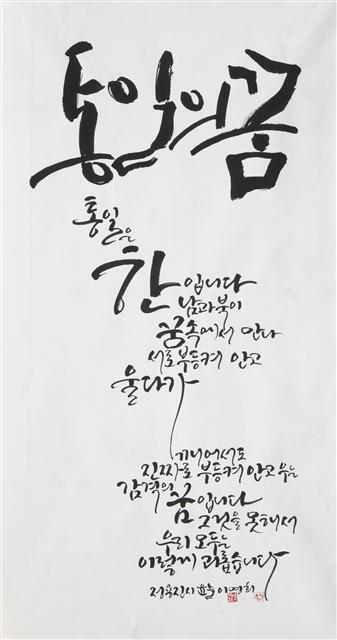 통일의 꿈
통일은
한입니다
남과북이
꿈속에서 만나
서로부등켜 안고
울다가
깨어서도
진짜로 부등켜안고 우는
감격의
꿈입니다
그것을 못해서
우리 모두는
이렇게 괴롭습니다
정용진시 이명희